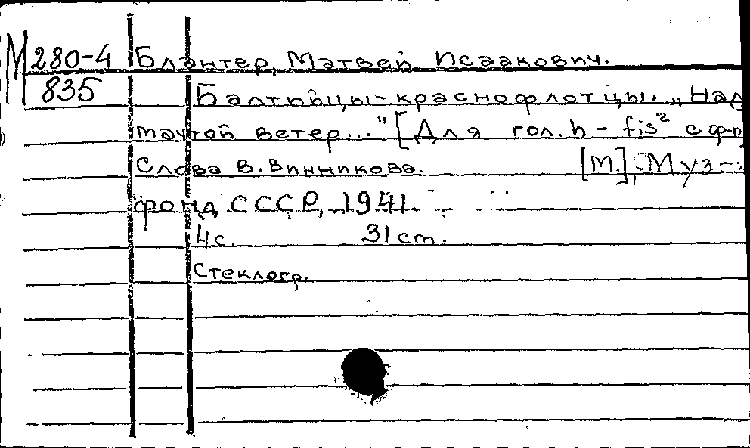 М 280-4 Блантер, Матвей Исаакович.
835 Балтийцы-краснофлотцы. „Над
мачтой ветер..." [Для гол. h - fis² с ф-п
Слова В. Винникова. [М.], Муз-
фонд СССР, 1941.
4 с. 31 cm.
Стеклогр.